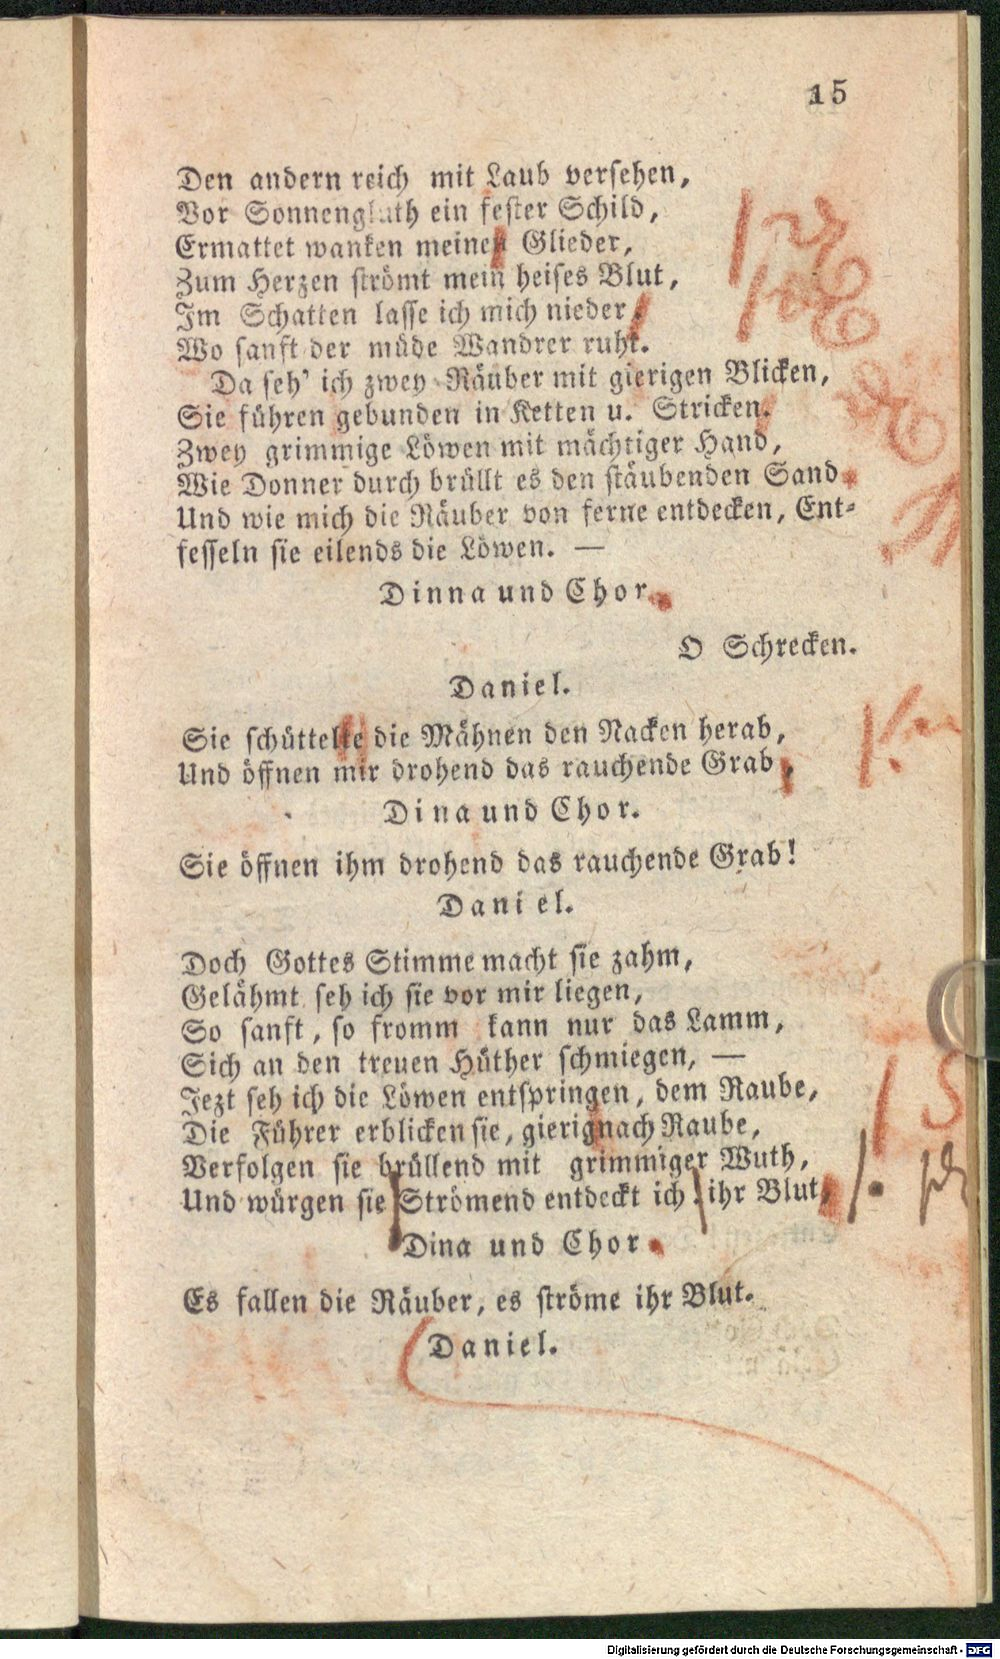 15
Den andern reich mit Laub versehen,
Vor Sonnengluth ein fester Schild,
Ermattet wanken meinen Glieder,
Zum Herzen strömt mein heises Blut,
Im Schatten lasse ich mich nieder,
Wo sanft der müde Wandrer ruht.
Da seh' ich zwey Räuber mit gierigen Blicken,
Sie führen gebunden in Ketten u. Stricken.
Zwey grimmige Löwen mit mächtiger Hand,
Wie Donner durch brüllt es den stäubenden Sand.
Und wie mich die Räuber von ferne entdecken, Ent-
fesseln sie eilends die Löwen. —
Dinna und Chor.
O Schrecken.
Daniel.
Sie schüttelte die Mähnen den Nacken herab,
Und öffnen mir drohend das rauchende Grab,
Dina und Chor.
Sie öffnen ihm drohend das rauchende Grab!
Daniel.
Doch Gottes Stimme macht sie zahm,
Gelähmt seh ich sie vor mir liegen,
So sanft, so fromm kann nur das Lamm,
Sich an den treuen Hüther schmiegen, —
Jezt seh ich die Löwen entspringen, dem Raube,
Die Führer erblicken sie, gierig nach Raube,
Verfolgen sie brüllend mit grimmiger Wuth,
Und würgen sie Strömend entdeckt ich. ihr Blut,
Dina und Chor.
Es fallen die Räuber, es ströme ihr Blut.
Daniel.
Digitalisierung gefördert durch die Deutsche Forschungsgemeinschaft - DFG